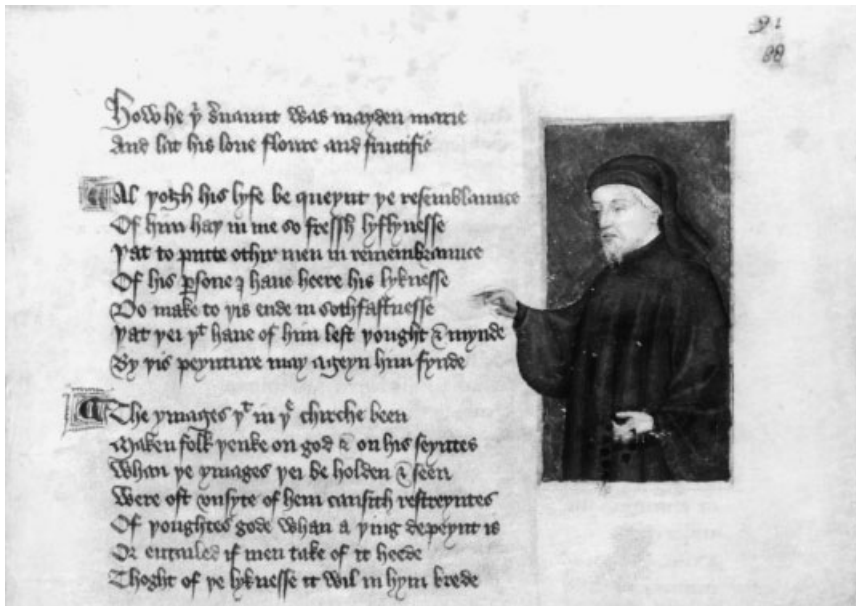 91
88
How he yͭ sͥuaunt was mayden marie
And lat his loue floure and fructifie
Al yogh his lyfe be queynt ye resemblaunce
Of him hay in me so fressh lyflynesse
Yat to putte othir men in remembraunce
Of his ꝑsone I haue heere his lyknesse
Do make to yis ende in sothfastnesse
Yat yei yͭ haue of him left yought & mynde
By yis peynture may ageyn him fynde
The ymages yͭ in yͤ chirche been
Maken folk yenke on god & on his seyntes
Whan ye ymages yei be holden & seen
Were oft vnsyte of hem causith restreyntes
Of youghtes gode whan a ying depeynt is
Or entailed if men take of it heede
Thoght of ye lyknesse it wil in hym brede